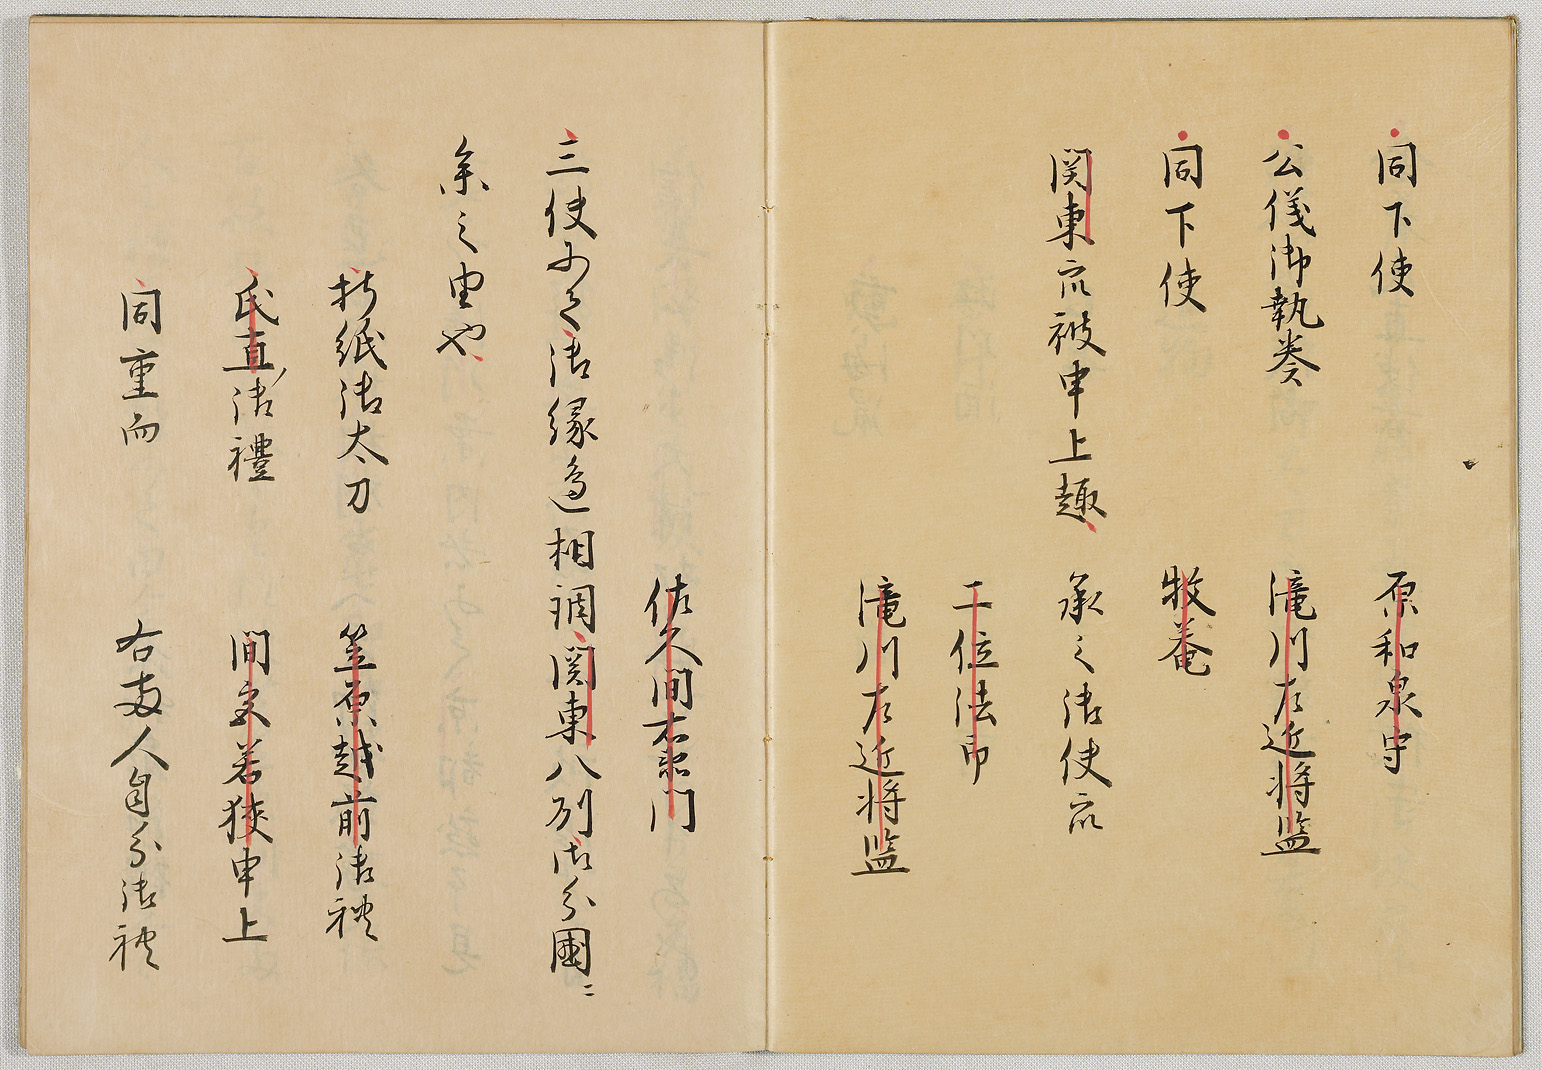 同下使 原和泉守
公儀御執奏 滝川左近将監
同下使 牧菴
関東衆被申上趣 承之御使衆
二位法印
滝川左近将監
佐久間右衛門
三使ニ而御縁邊相調関東八列御分國ニ
参之由也
折紙御太刀 笠原越前御礼
氏直御禮 間宮若狭申上
同重而 右両人自分御礼